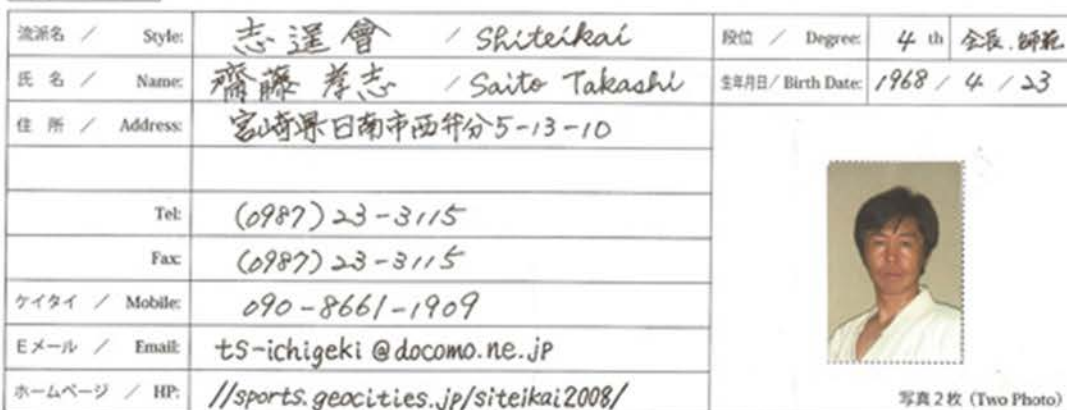 流派名 / Style: 志運會 / Shiteikai 段位 / Degree: 4 th 会長.師範
氏 名 / Name: 齋藤 孝志 / Saito Takashi 生年月日 / Birth Date: 1968 / 4 / 23
住 所 / Address: 宮崎県日南市西弁分5-13-10
Tel: (0987) 23-3115
Fax: (0987) 23-3115
ケイタイ / Mobile: 090-8661-1909
Eメール / Email: ts-ichigeki@docomo.ne.jp
ホームページ / HP: //sports.geocities.jp/siteikai2008/
写真2枚 (Two Photo)